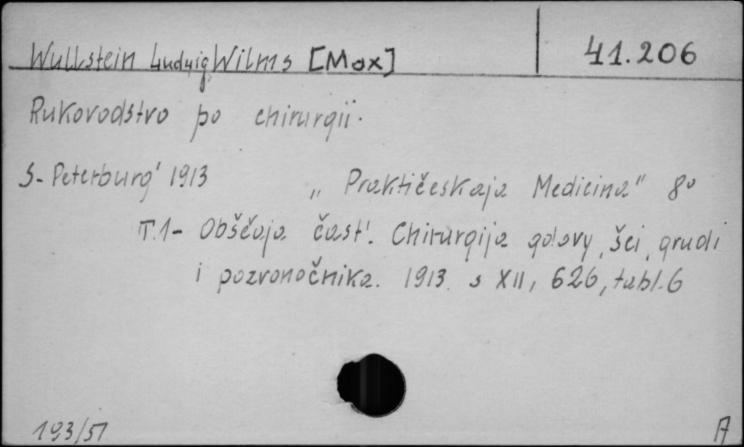 Wullstein Ludwig, Wilms [Max]
41.206
Rukovodstvo po chirurgii.
S-Peterburg' 1913 „Praktičeskaja Medicina" 8°
T.1- Obščaja čast'. Chirurgija golovy, šei, grudi
i pozvonočnika. 1913. s XII, 626, tabl. 6
193/51 A